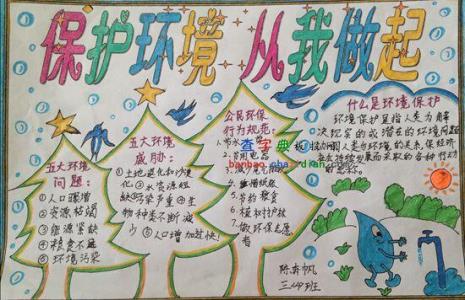 保护环境 从我做起
五大环境
问题：
①人口
②资源枯竭
③能源紧缺
④粮食不足
⑤环境污染
五大环境
威胁：
①土地退化和沙漠
化②水资源短
缺③污染严重④生
物种类不断减
少⑤人口增加过快！
公民环保
行为规范：
1.节水
2.节用电器
3.减少
4.
5.节约粮食
6.植树护林
7.做环保志愿
者
什么是环境保护
环境保护是指人类为解
决现实的或潜在的环境问题
人类与环境的关系，保
而采取的各种行动
查字典
陈奔帆
三（4）班